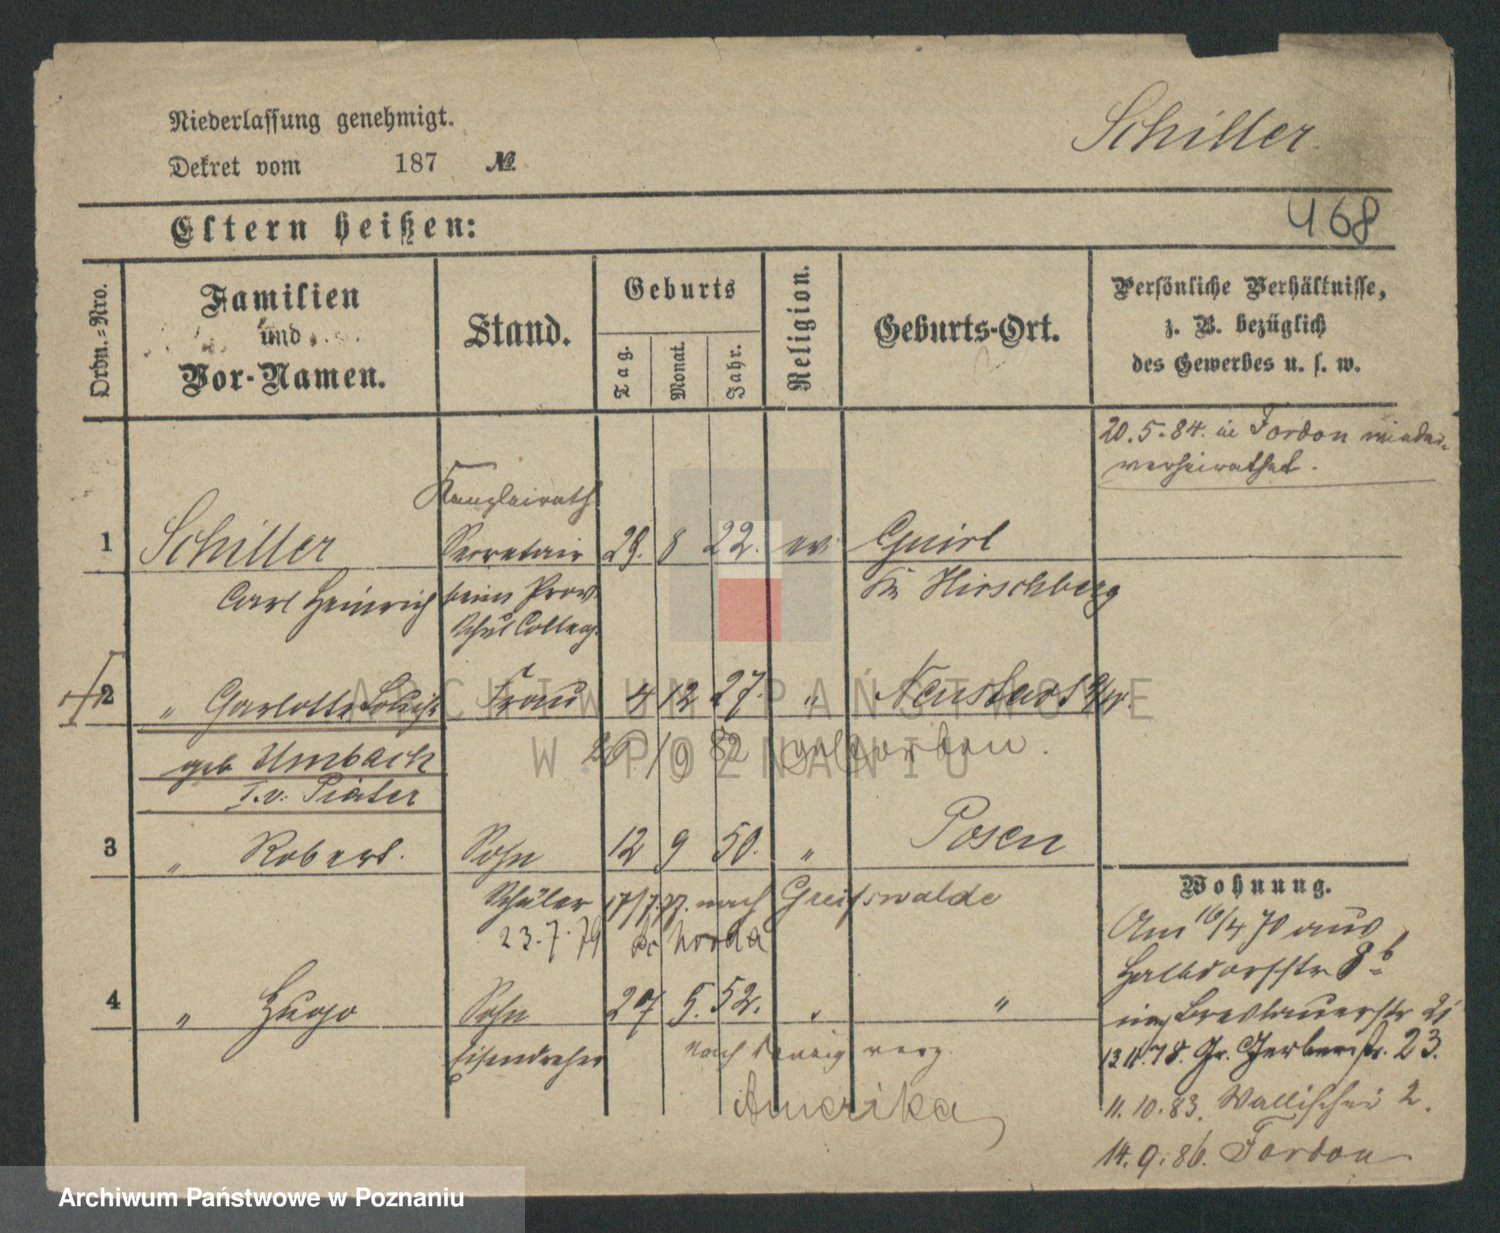 Niederlassung genehmigt.
Schiller
Dekret vom 187 №
Eltern heißen:
468
Ordn.-Nro.
Familien und Vor-Namen.
Stand.
Geburts
Tag.
Monat.
Jahr.
Religion.
Geburts-Ort.
Persönliche Verhältnisse,
z. B. bezüglich
des Gewerbes u. s. w.
20.5.84. in Fordon wieder
verheirathet.
Kanzleirath
1 Schiller Secretair 29. 8 22. ev.
Carl Heinrich beim Prov. Kr Hirschberg
Schul Colleg.
2 " Carlotte Louise Frau 4 12 27. " Neustadt
26 19 82 gestorben.
geb Umbach
T. v. Piater
3 " Robert. Sohn 12 9 50. " Posen
Schüler 17/7.77. nach Greifswalde
23.7.79
4 " Hugo Sohn 27 5. 52. " "
Eisendreher nach Danzig verz.
Amerika
Wohnung.
Am 16/4 70 aus
Halbdorfstr 8b
Breslauerstr 21
13.11.78. Gr. Gerberstr. 23.
11.10.83. Wallischei 2.
14.9.86. Fordon
ARCHIWUM PAŃSTWOWE
W POZNANIU
Archiwum Państwowe w Poznaniu